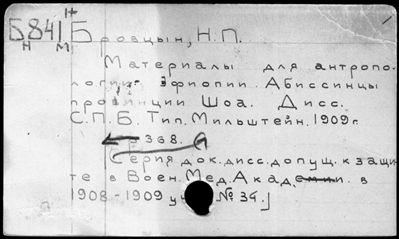 Н
Б841 Бровцын, Н.П.
Н М
Материалы для антропо-
логии Эфиопии. Абиссинцы
провинции Шоа. Дисс.
С.П.Б. Тип. Мильштейн. 1909г.
368.
Серия док. дисс. допущ. к защи-
те в Воен. Мед. Академии. в
1908-1909 уч. № 34.